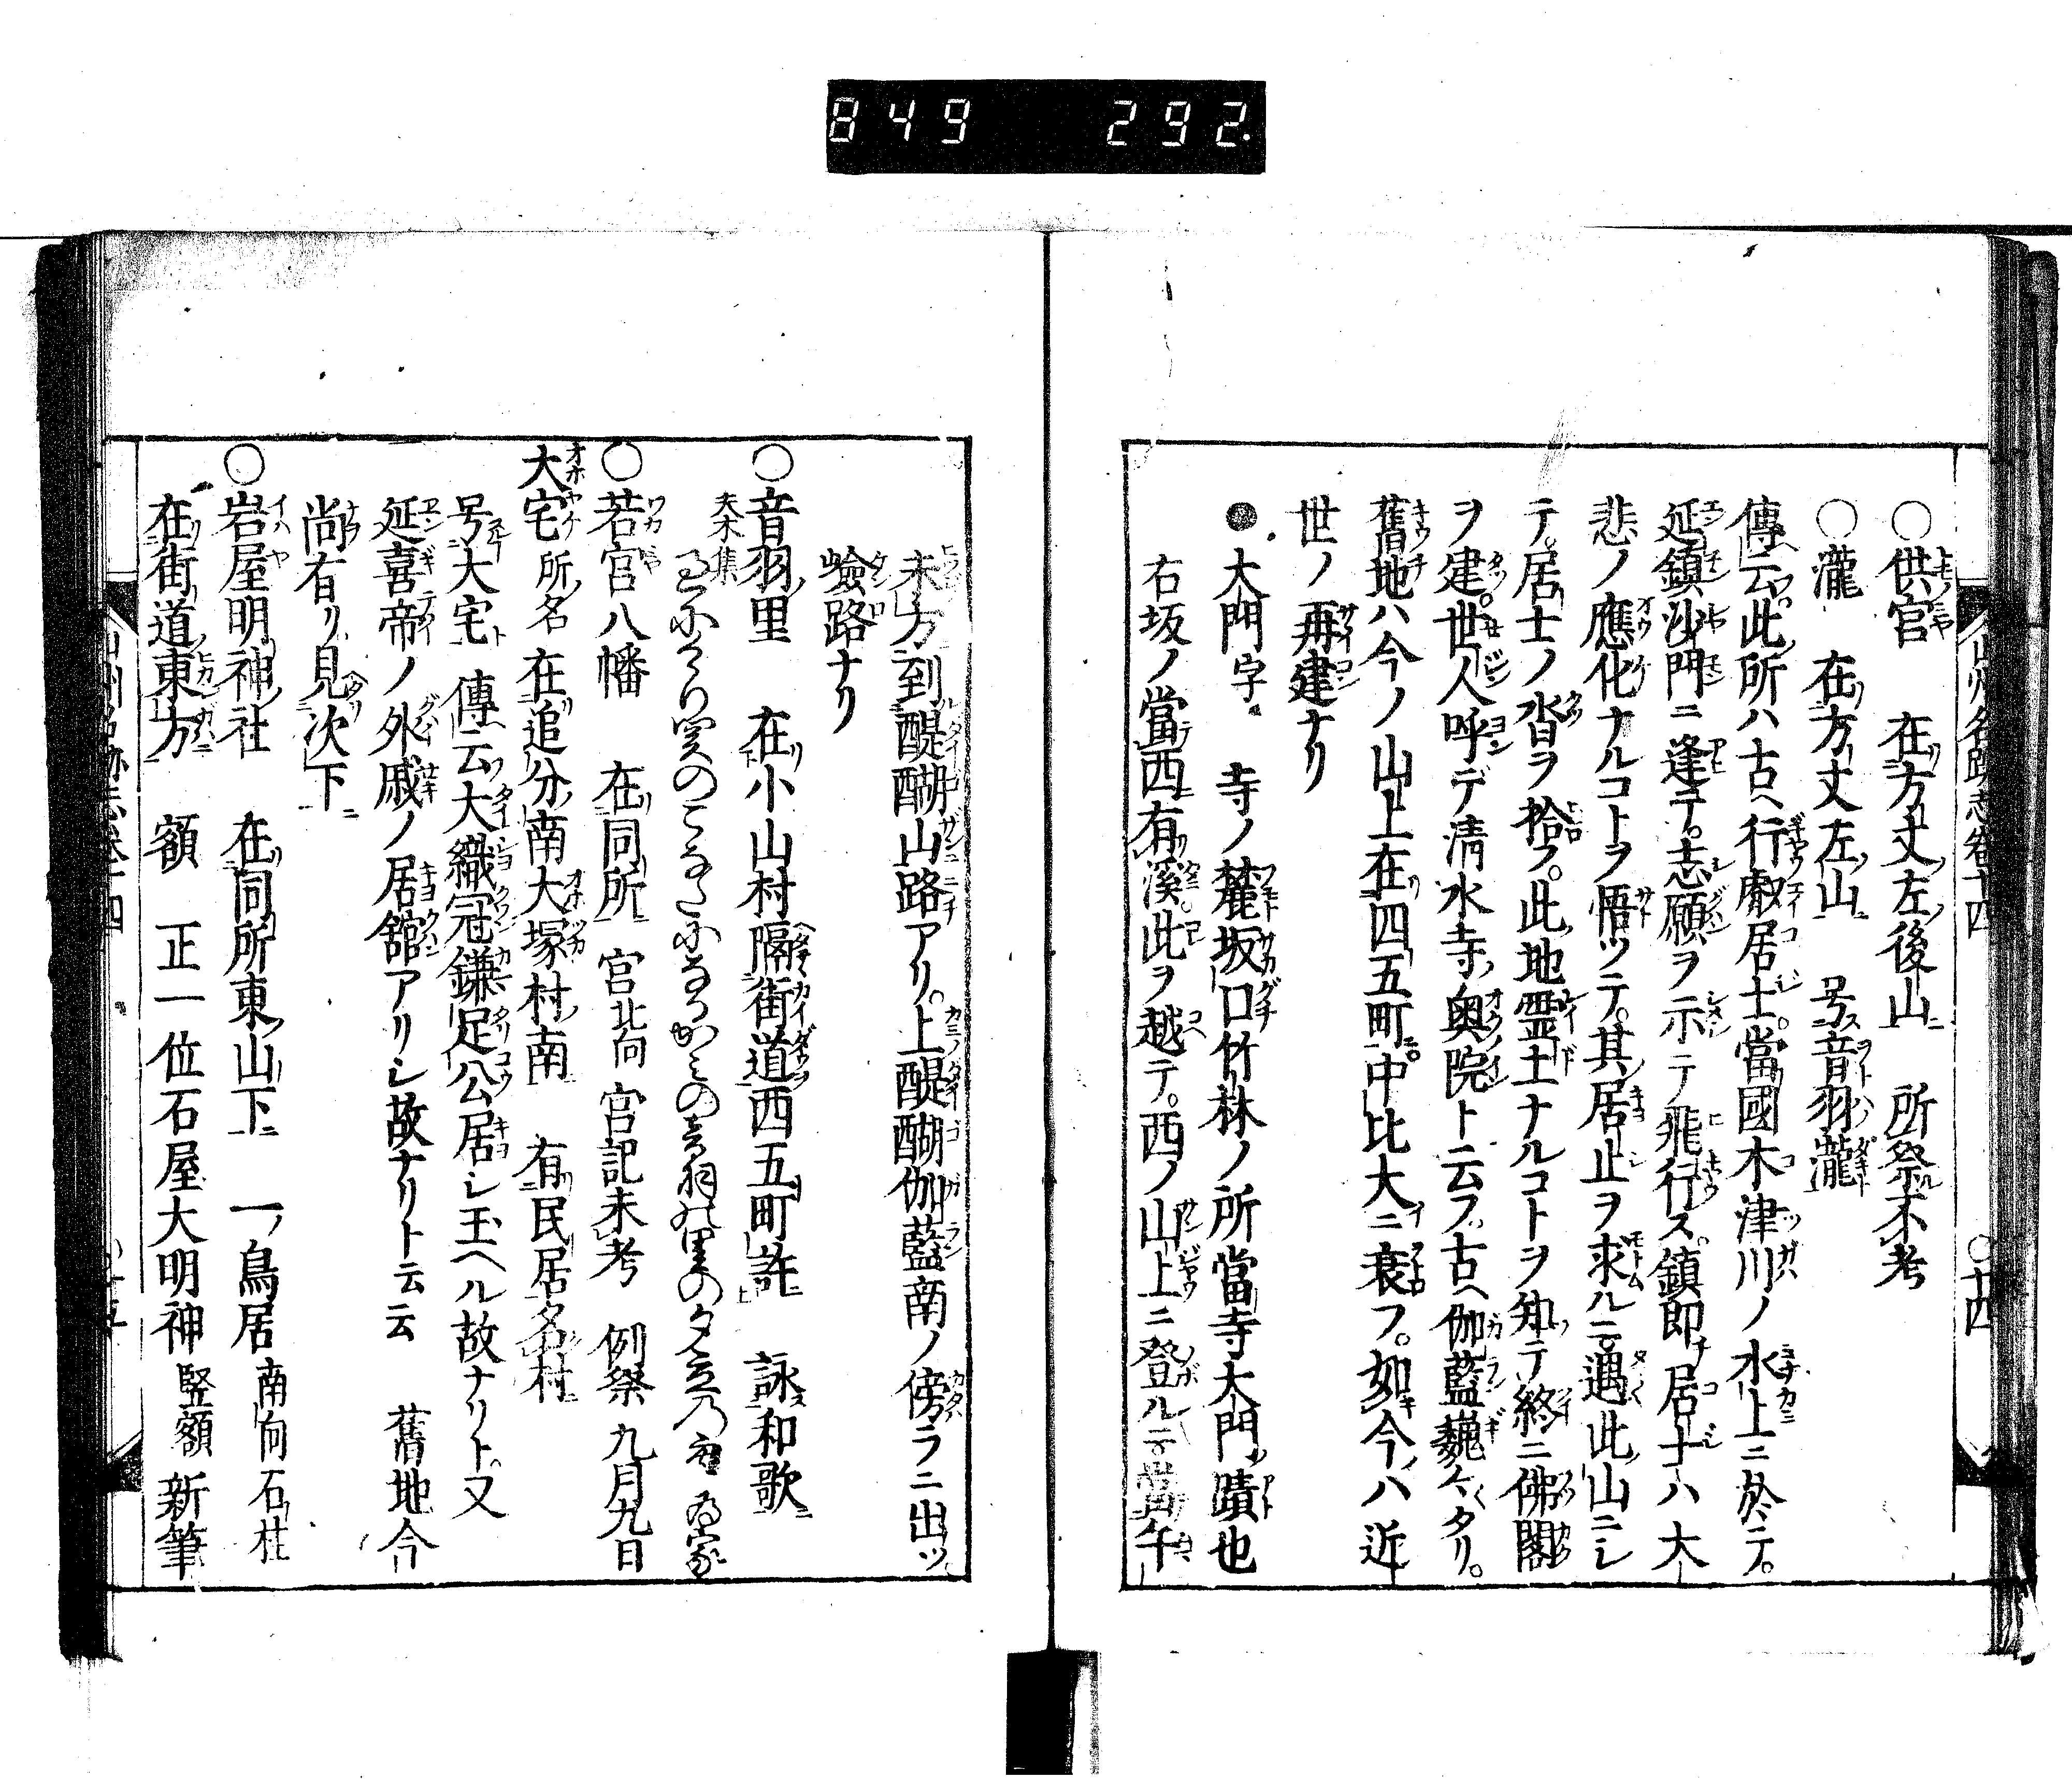 849 292.
山州名跡志巻十四 ○十四
○供宮 在方丈左後山 所祭不考
○瀧 在方丈左山 号音羽瀧
傳云此所ハ古ヘ行叡居士當國木津川ノ水上ニ於テ。
延鎮沙門ニ逢テ。志願ヲ示テ飛行ス。鎮即居士ハ大
悲ノ應化ナルコトヲ悟ツテ。其居止ヲ求ルニ。遇此山ニシ
テ。居士ノ沓ヲ拾フ。此地霊土ナルコトヲ知テ終ニ佛閣
ヲ建。世人呼デ清水寺奥院ト云フ。古ヘ伽藍巍々タリ。
舊地ハ今ノ山上在四五町。中比大ニ衰フ。如今ハ近
世ノ再建ナリ
●大門字 寺ノ麓坂口竹林ノ所當寺大門蹟也
右坂ノ當西有溪。此ヲ越テ。西ノ山上ニ登ルニ當午
未方到醍醐山路アリ。上醍醐伽藍南ノ傍ラニ出ツ
嶮路ナリ
○音羽里 在小山村隔街道西五町許 詠和歌
夫木集 の音羽の里の夕立乃 為家
○若宮八幡 在同所 宮北向 宮記未考 例祭 九月九日
大宅所名 在追分南大塚村南 有民居名村
号大宅 傳云大織冠鎌足公居シ玉ヘル故ナリト。又
延喜帝ノ外戚ノ居舘アリシ故ナリト云云 舊地今
尚有リ見次下
○岩屋明神社 在同所東山下 一鳥居 南向石柱
在街道東方 額 正一位石屋大明神 竪額 新筆